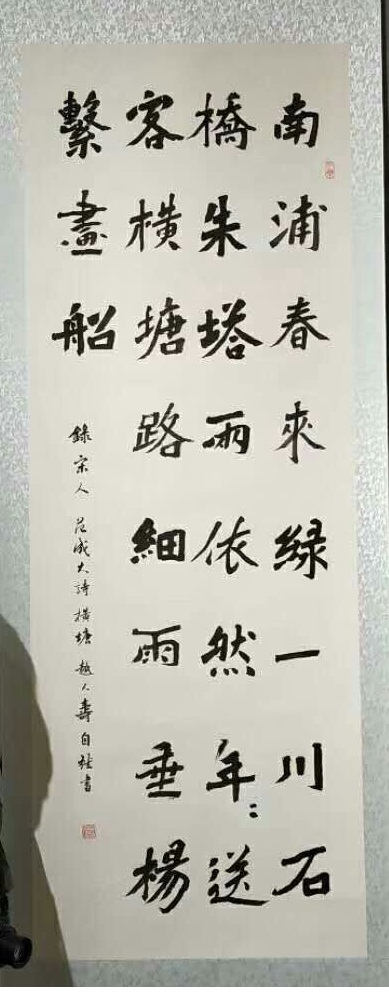 南浦春來绿一川石
橋朱塔雨依然年〻送
客橫塘路細雨垂楊
繫畫船
錄宋人范成大詩橫塘越人壽自 書